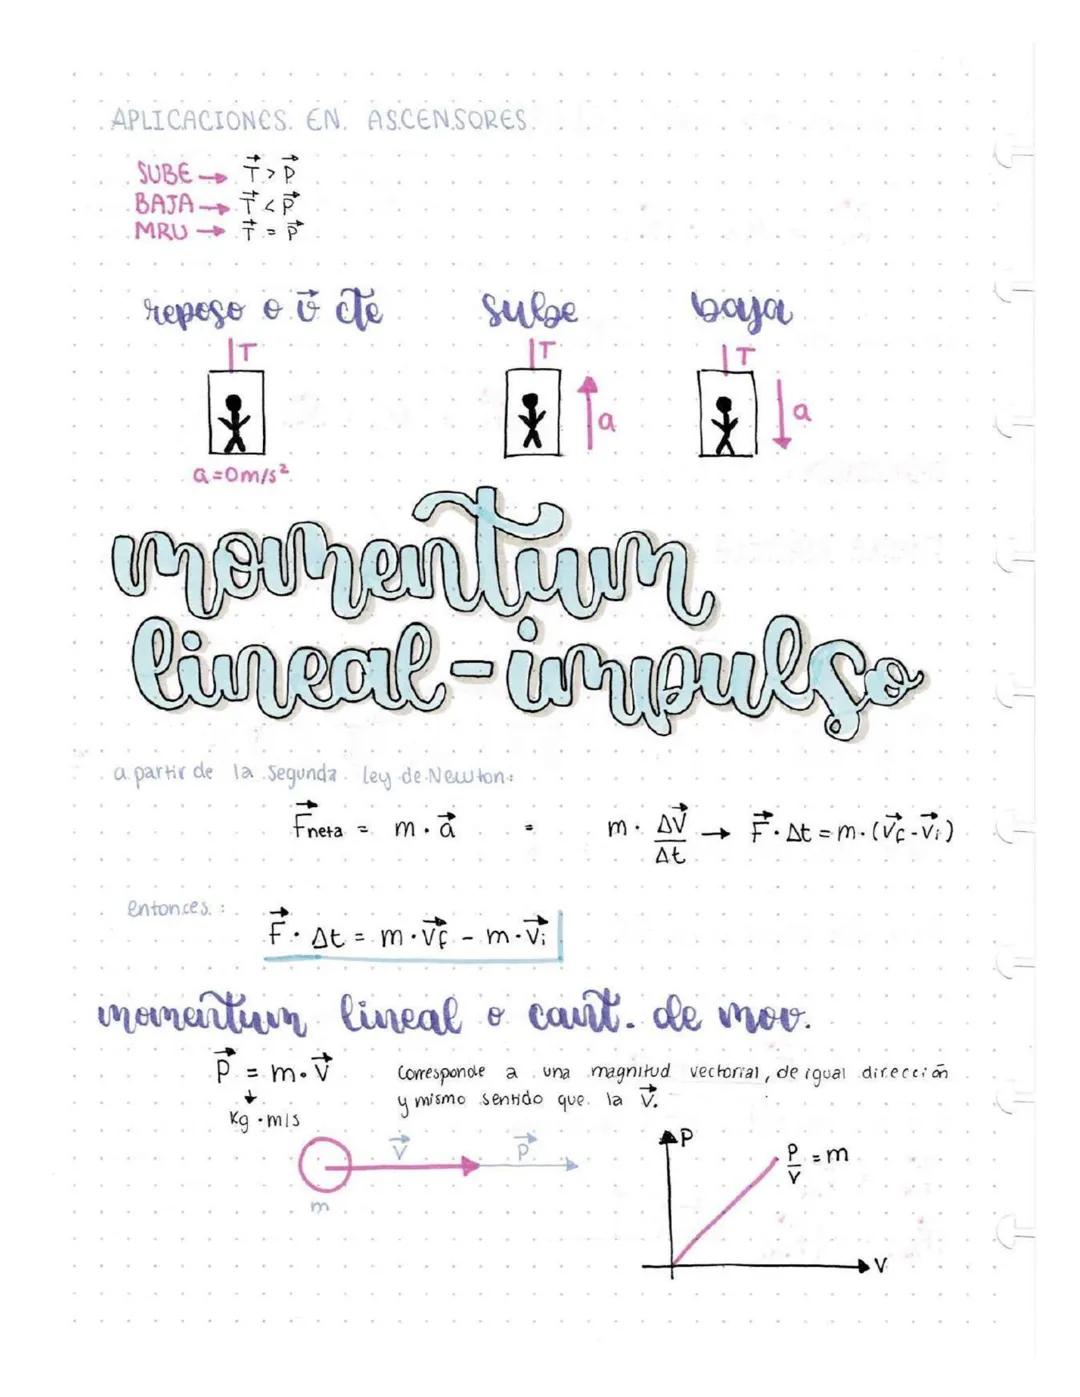 APLICACIONES EN ASCENSORES
SUBE → T⃗ > P⃗
BAJA → T⃗ < P⃗
MRU → T⃗ = P⃗
reposo o v⃗ cte
sube
baja
T
T
T
a
a
a=0m/s²
momentum
lineal-impulso
a partir de la segunda ley de Newton:
F⃗neta = m · a⃗ = m · Δv⃗/Δt → F⃗ · Δt = m · (v⃗f - v⃗i)
entonces:
F⃗ · Δt = m · v⃗f - m · v⃗i
momentum lineal o cant. de mov.
P⃗ = m · v⃗
Corresponde a una magnitud vectorial, de igual dirección
y mismo sentido que la v⃗.
Kg · m/s
v⃗
P⃗
m
P
P/v = m
v